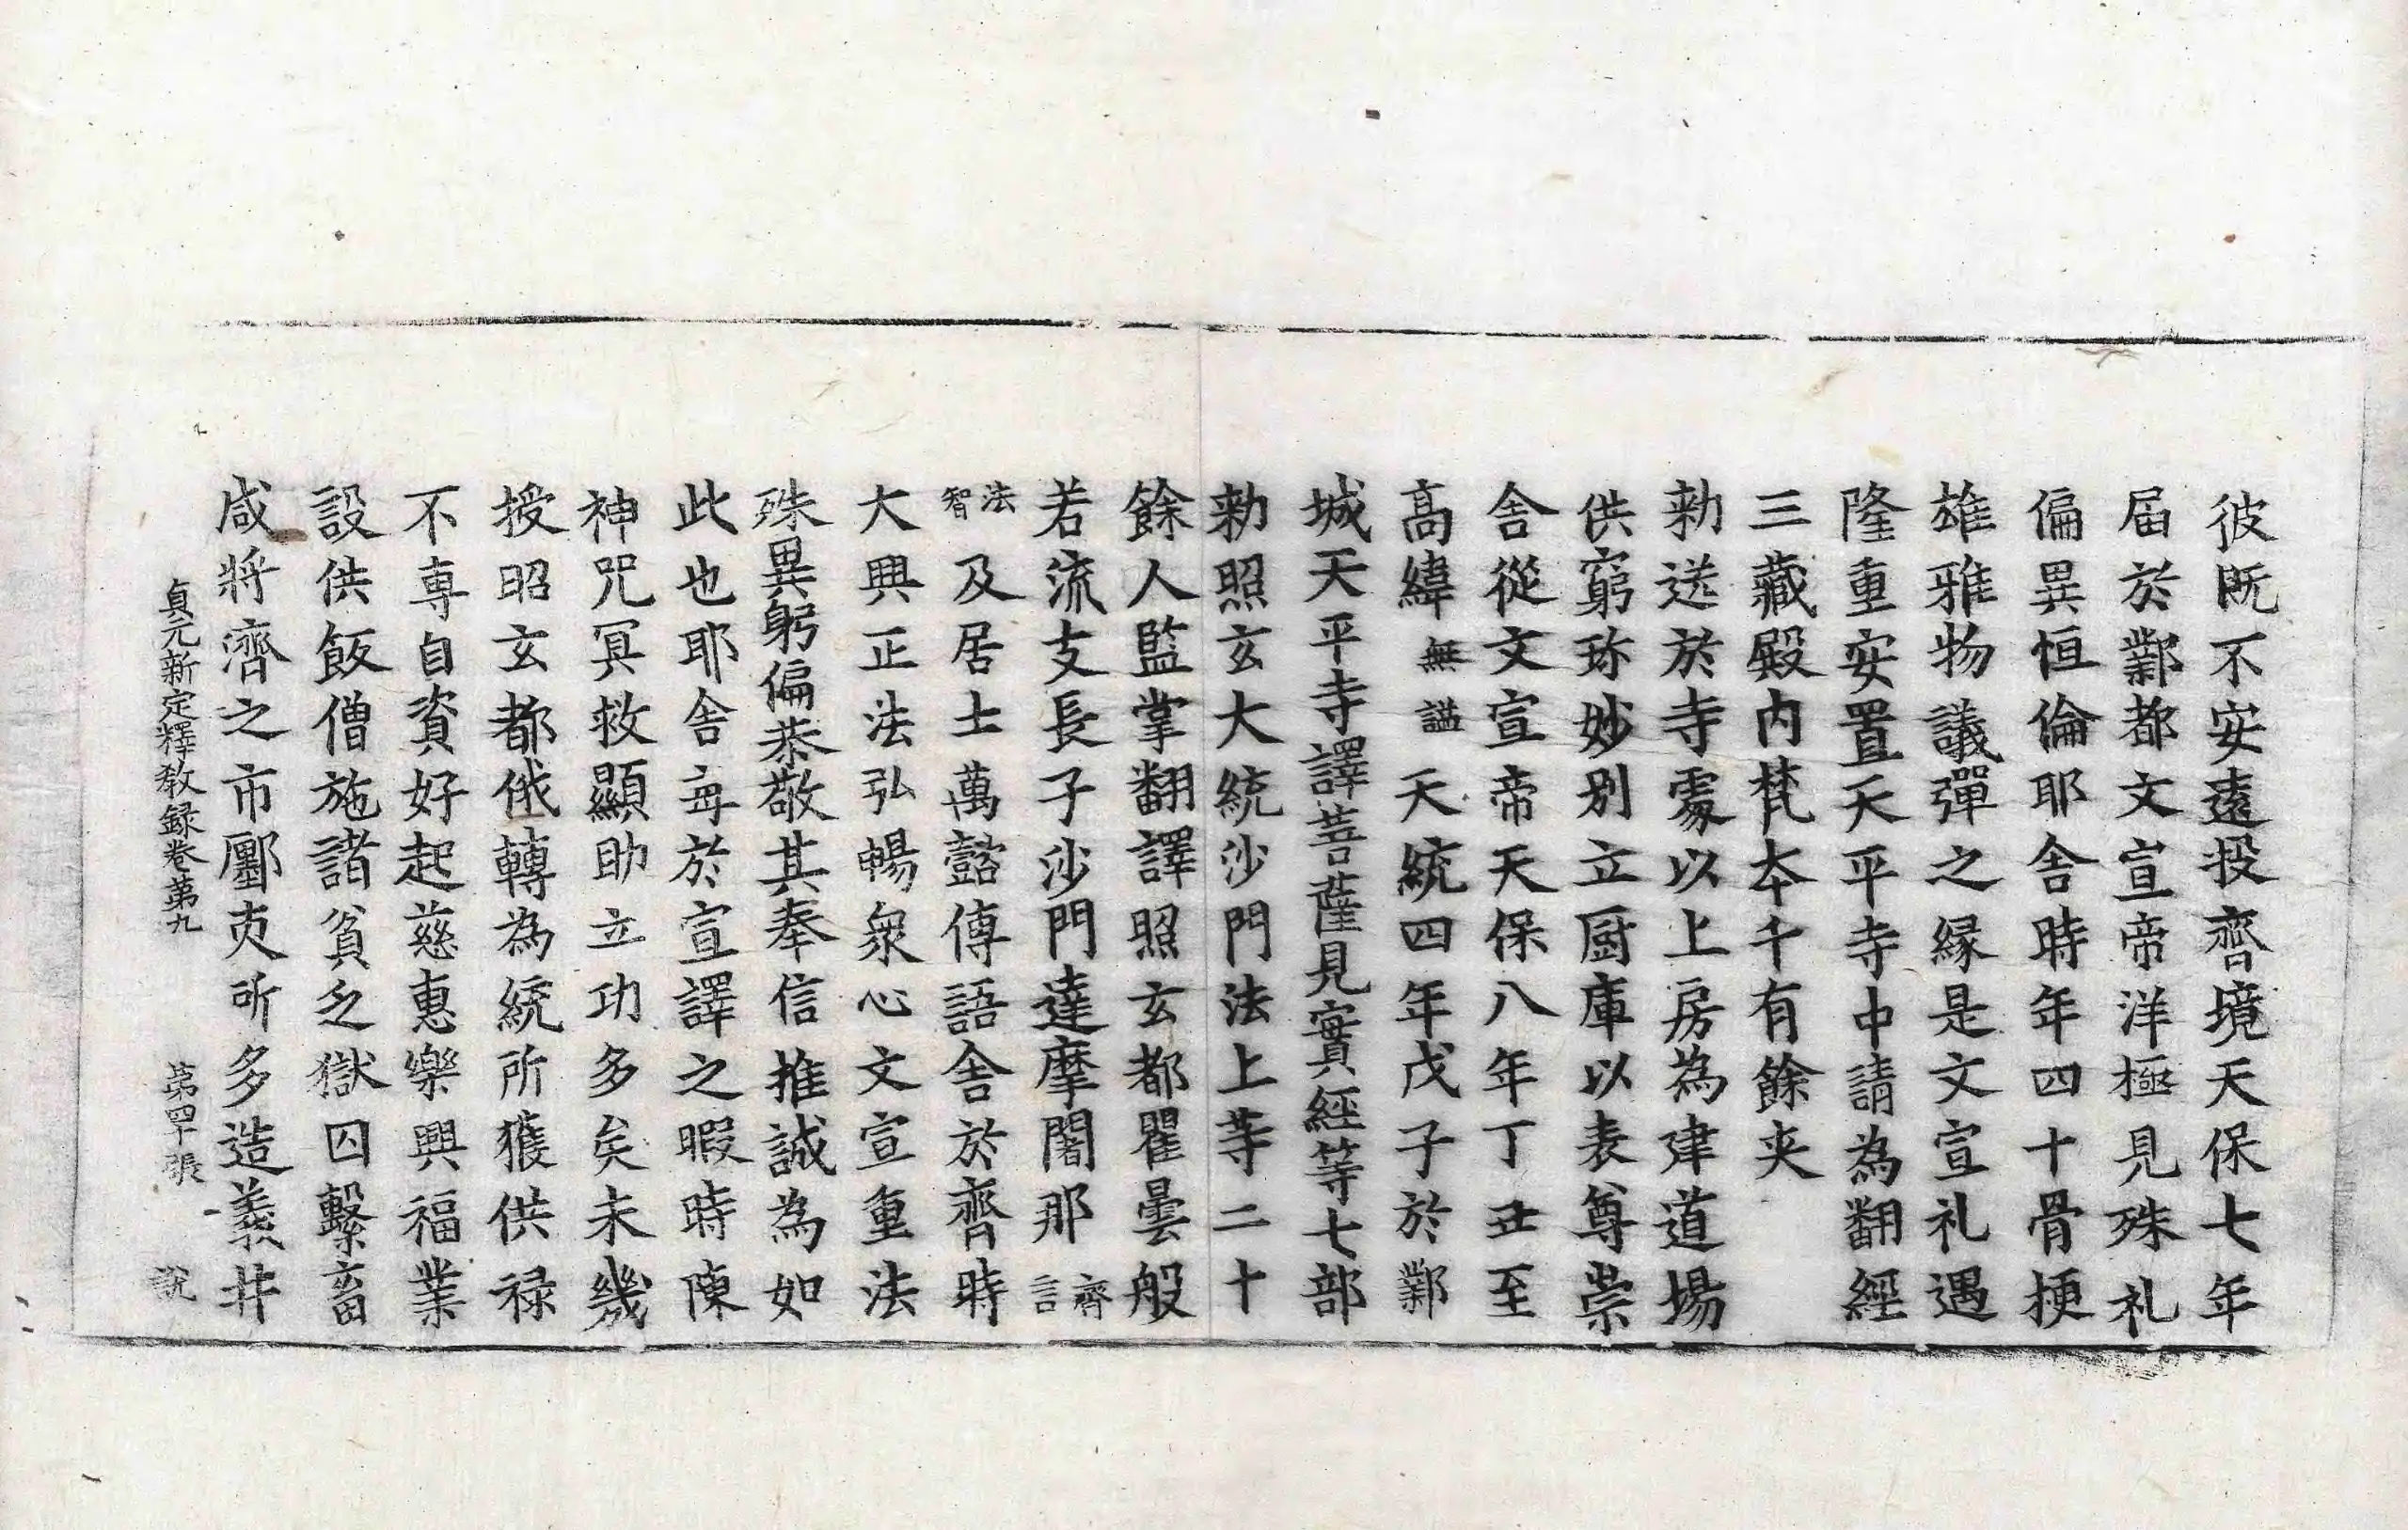 彼旣不安遠投齊境天保七年
届於鄴都文宣帝洋極見殊礼
偏異恒倫耶舍時年四十骨梗
雄雅物議彈之緣是文宣礼遇
隆重安置天平寺中請為翻經
三藏殿内梵夲千有餘夹
勑送於寺處以上房為建道場
供窮珎妙别立厨庫以表尊崇
舍從文宣帝天保八年丁丑至
髙緯無謚天統四年戊子於鄴
城天平寺譯菩薩見實經等七部
勑照玄大統沙門法上等二十
餘人監掌翻譯照玄都瞿曇般
若流支長子沙門達摩闍那齊言
法智及居士萬懿傳語舍於齊時
大興正法弘暢衆心文宣重法
殊異躬偏恭敬其奉信推誠為如
此也耶舍每於宣譯之暇時陳
神呪冥救顯助立功多矣未幾
授昭玄都俄轉為統所獲供禄
不専自資好起慈惠樂興福業
設供飯僧施諸貧乏獄囚繫畜
咸將濟之市鄽吏所多造義井
貞元新定釋教録卷第九 第四十張 說